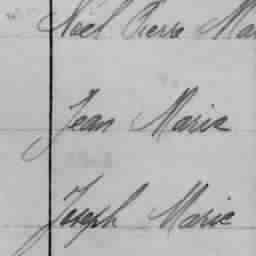 Noël Pierre Mar
Jean Marie
Joseph Marie